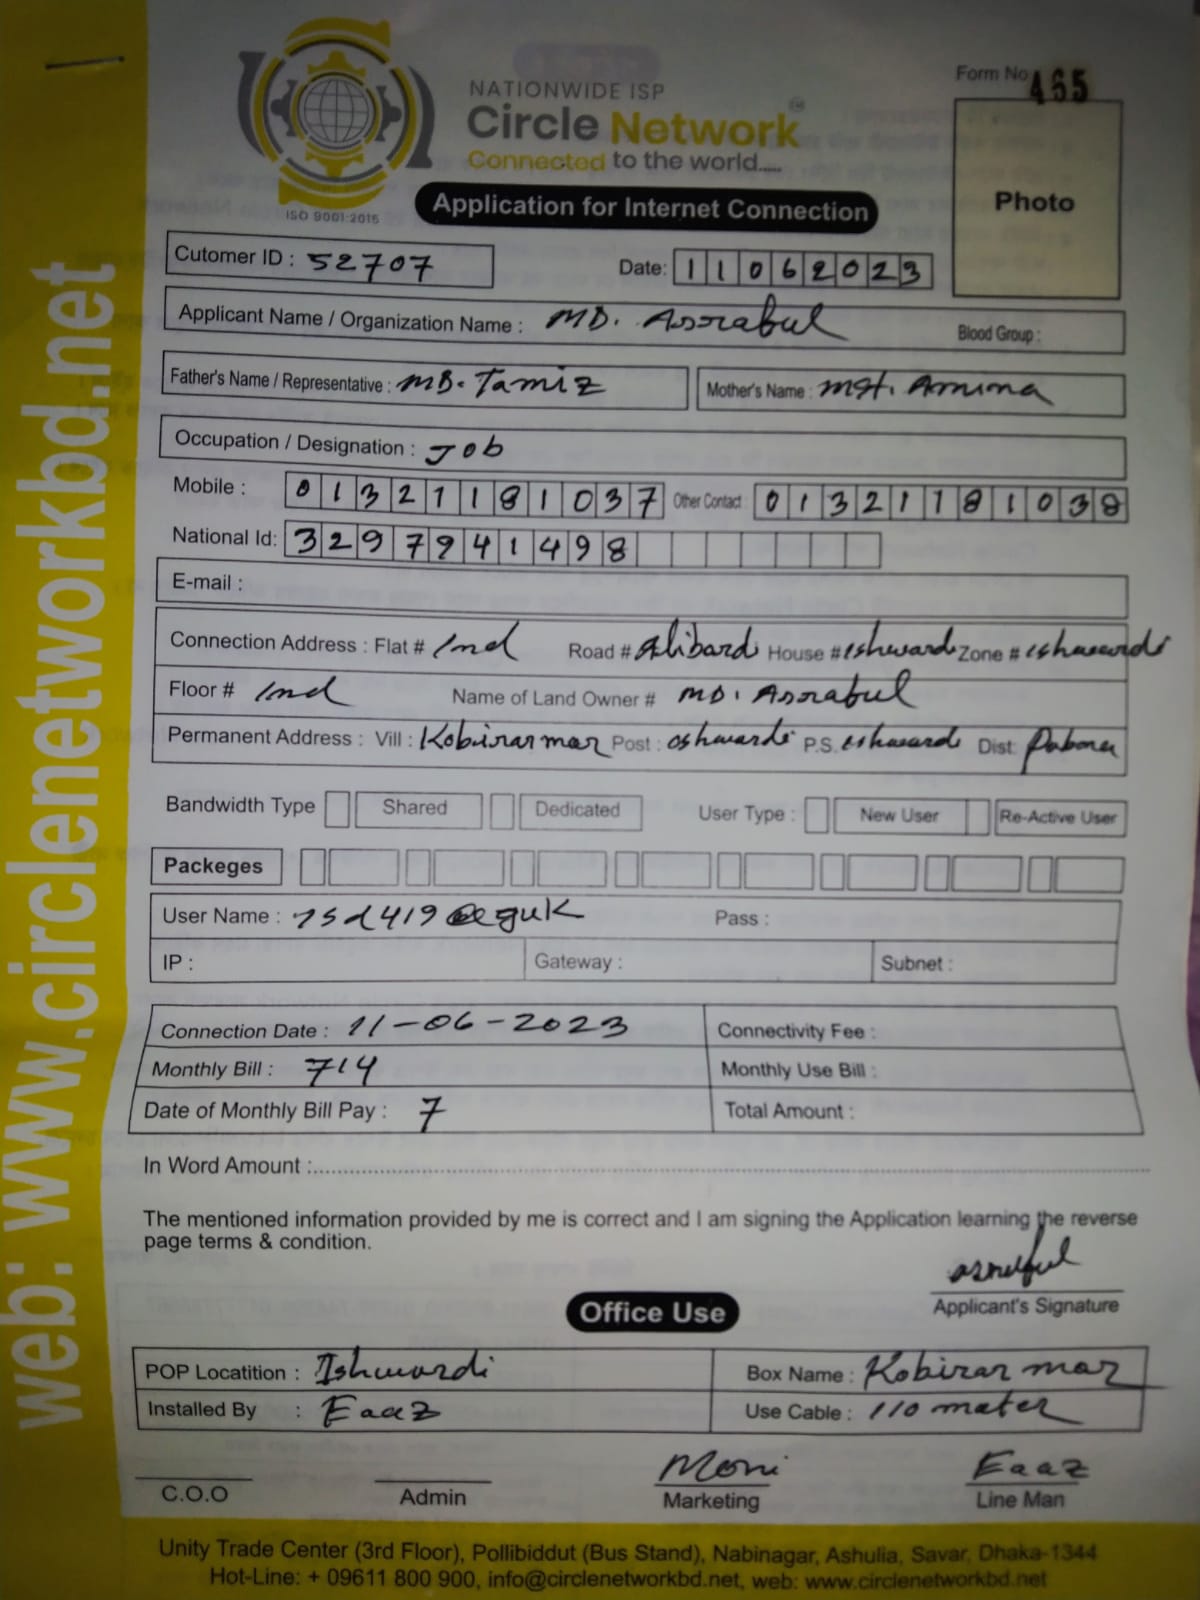 Form No 465
NATIONWIDE ISP
Circle Network
Connected to the world.....
ISO 9001:2015
Application for Internet Connection
Photo
Cutomer ID : 52707 Date: 11062023
Applicant Name / Organization Name : MD. Asrabul Blood Group :
Father's Name / Representative : MD. Tamiz Mother's Name : Mst. Amina
Occupation / Designation : Job
Mobile : 01321181037 Other Contact : 01321181038
National Id: 3297941498
E-mail :
Connection Address : Flat # Road # Alibardi House # Zone #
Floor # Name of Land Owner # MD. Asrabul
Permanent Address : Vill : Kobirarmar Post : P.S. Dist: Pabona
Bandwidth Type Shared Dedicated User Type : New User Re-Active User
Packeges
User Name : Pass :
IP : Gateway : Subnet :
Connection Date : 11-06-2023 Connectivity Fee :
Monthly Bill : 714 Monthly Use Bill :
Date of Monthly Bill Pay : 7 Total Amount :
In Word Amount :
The mentioned information provided by me is correct and I am signing the Application learning the reverse
page terms & condition.
Applicant's Signature
Office Use
POP Locatition : Ishwardi Box Name : Kobirar mar
Installed By : Eaaz Use Cable : 110 mater
Moni Eaaz
C.O.O Admin Marketing Line Man
Unity Trade Center (3rd Floor), Pollibiddut (Bus Stand), Nabinagar, Ashulia, Savar, Dhaka-1344
Hot-Line: + 09611 800 900, info@circlenetworkbd.net, web: www.circlenetworkbd.net
web: www.circlenetworkbd.net